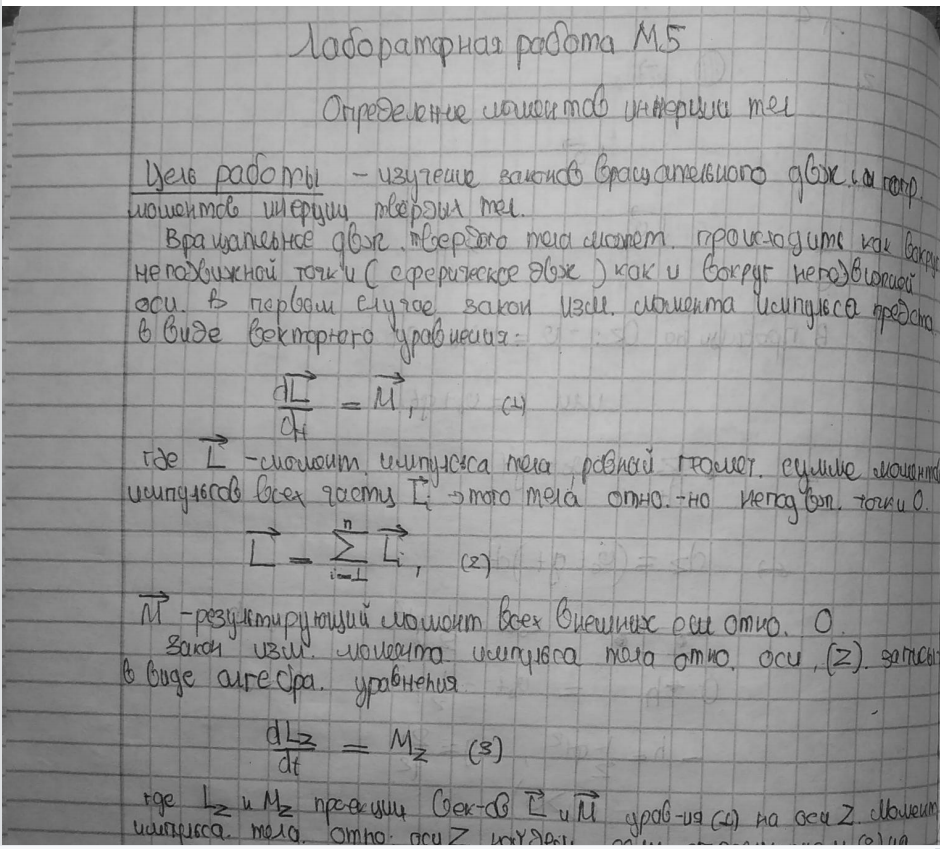 Лабораторная работа М5
Определение моментов инерции тел
Цель работы – изучение законов вращательного движ. и опр.
моментов инерции твёрдых тел.
Вращательное движ. твердого тела может происходить как вокруг
неподвижной точки (сферическое движ) как и вокруг неподвижной
оси. В первом случае закон изм. момента импульса предста
в виде векторного уравнения:
dL/dt = M, (1)
где L - момент импульса тела равный геомет. сумме момент
импульсов всех частиц Li этого тела отно.-но неподвиж. точки О.
L = ∑ⁿᵢ₌₁ Li, (2)
M - результирующий момент всех внешних сил отно. О.
Закон изм. момента импульса тела отно. оси (Z). записы
в виде алгебра. уравнения
dLz/dt = Mz (3)
где Lz и Mz проекции век-ов L и M урав-ия (1) на оси Z. Момент
импульса тела отно. оси Z